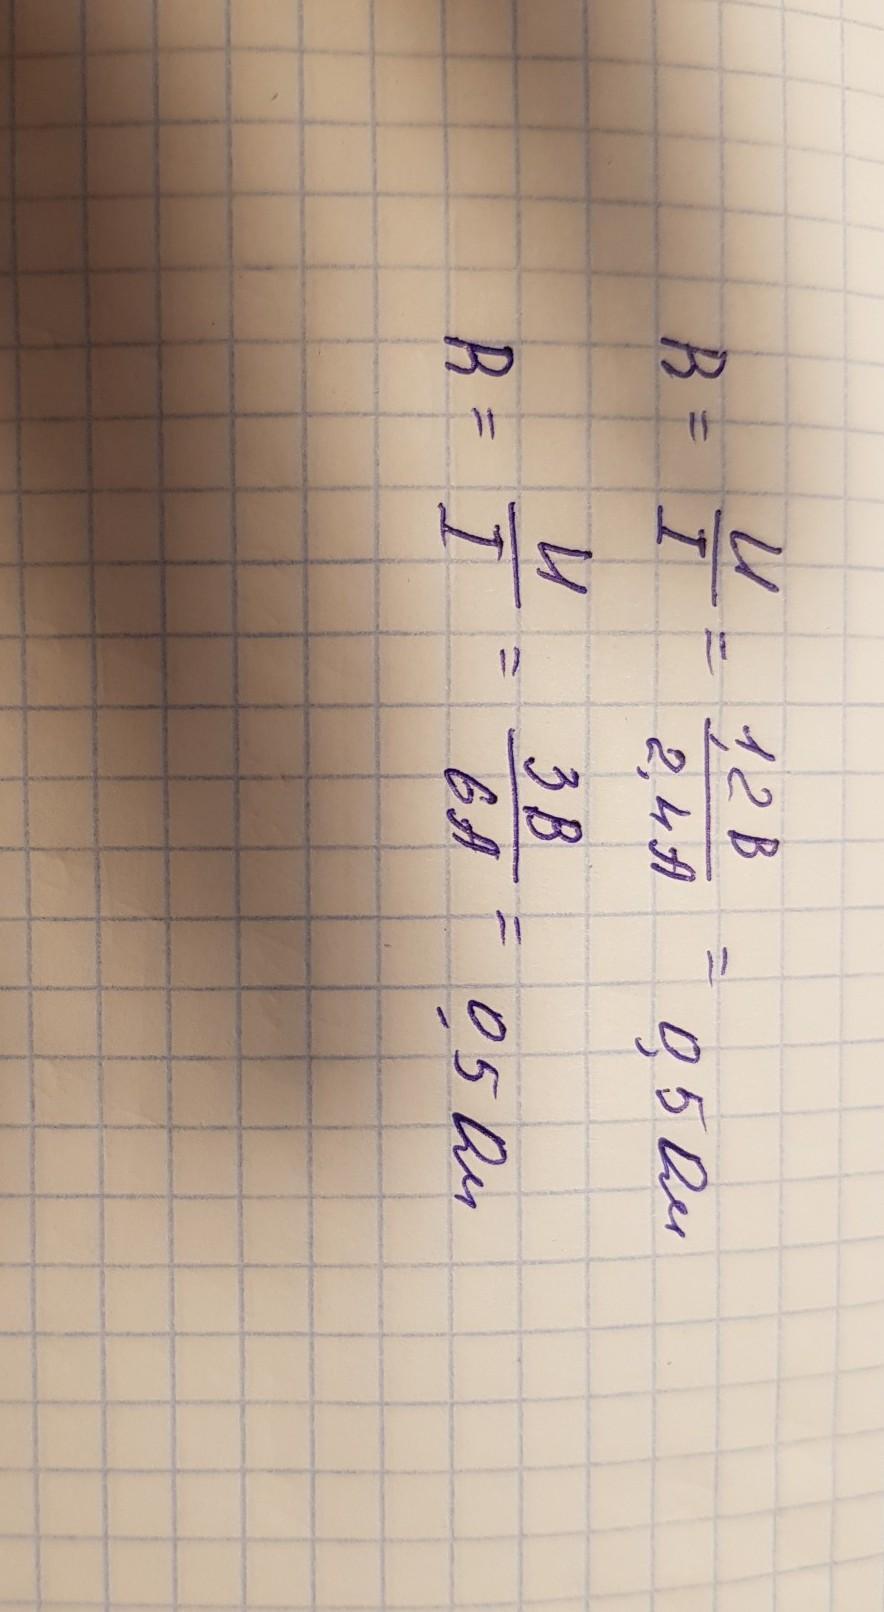 R = U/I = 1,2 В / 2,4 А = 0,5 Ом
R = U/I = 3 В / 6 А = 0,5 Ом